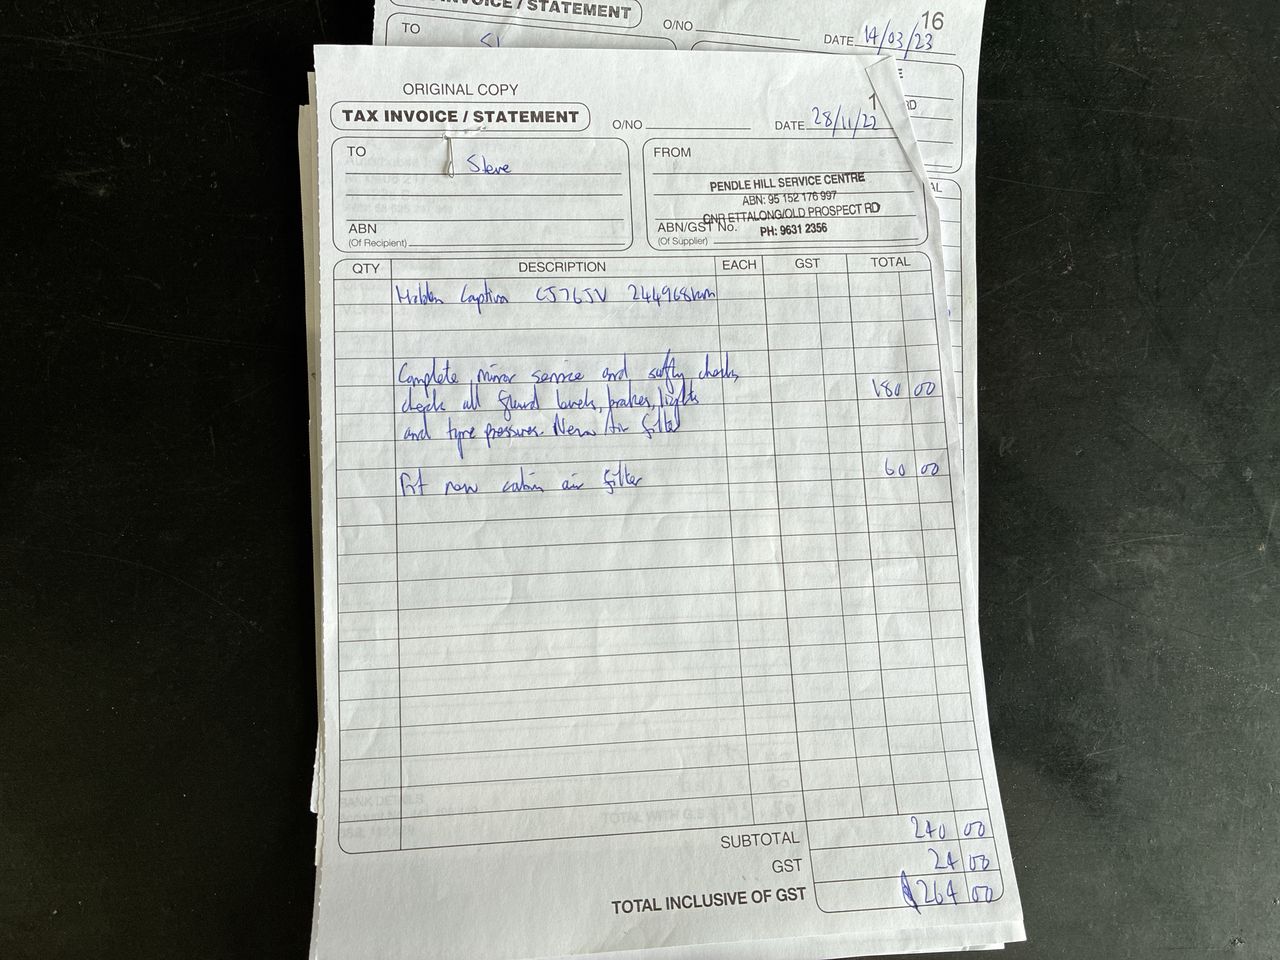 INVOICE / STATEMENT
O/NO
16
TO
DATE 14/03/23
ORIGINAL COPY
TAX INVOICE / STATEMENT
O/NO
1
DATE 28/11/22
TO Steve
ABN
(Of Recipient)
FROM
PENDLE HILL SERVICE CENTRE
ABN: 95 152 176 997
CNR ETTALONG/OLD PROSPECT RD
ABN/GST No.
PH: 9631 2356
(Of Supplier)
QTY DESCRIPTION EACH GST TOTAL
Holden Captiva CJ76JV 244968km
Complete minor service and safty check,
check all fluid levels, brakes, lights 180 00
and tyre pressures. New Air filter
Fit new cabin air filter 60 00
SUBTOTAL 240 00
GST 24 00
TOTAL INCLUSIVE OF GST $264 00